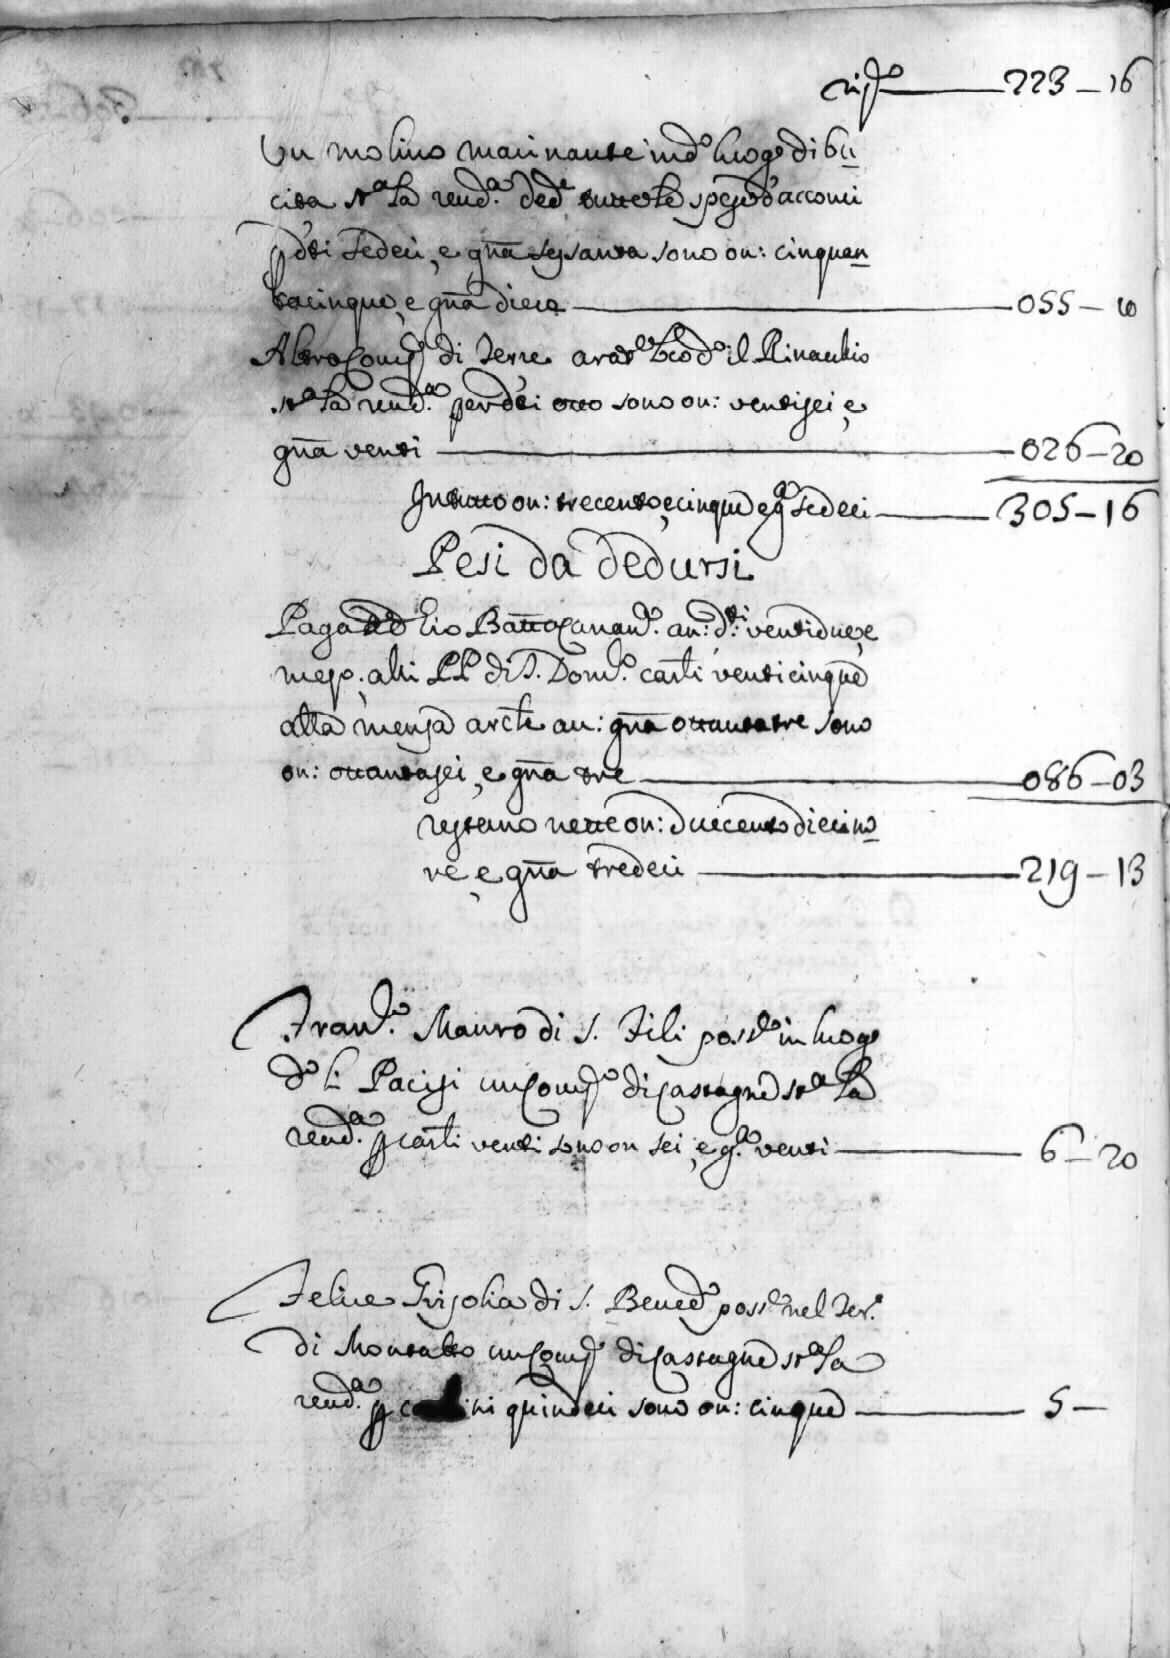 rip.o 223 - 16
Un molino macinante in d.o luogo di bu
cita st.a la rend.a ded.e tutte le spese d'acconci
p d.ti sedeci, e gña sessanta sono on: cinquan
tacinque, e gña diece 055 - 10
Altro Com.o di Terre arat.e loco d.o il Pinacchio
st.a la rend.a per d.ti otto sono on: ventisei, e
gña venti 026 - 20
In tutto on: trecento, e cinque e g.a sedeci 305 - 16
Pesi da dedursi
Paga ad Lio Batta an: d.ti ventidue, e
mezo, alli PP di S. Dom.o carli venticinque
alla mensa arcle an: gña ottantatre sono
on: ottantasei, e gña tre 086 - 03
restano nette on: duecento diecino
ve, e gña tredeci 219 - 13
Fran.o Mauro di S. Fili poss.e in luogo
d.o li Pacisi un Com.o di Castagne st.a la
rend.a p carli venti sono on sei, e g.a venti 6 - 20
Felice Grisolia di S. Bened.o poss.e nel Ter.o
di Montalto un Com.o di Castagne st.a la
rend.a p carlini quindeci sono on: cinque 5 -